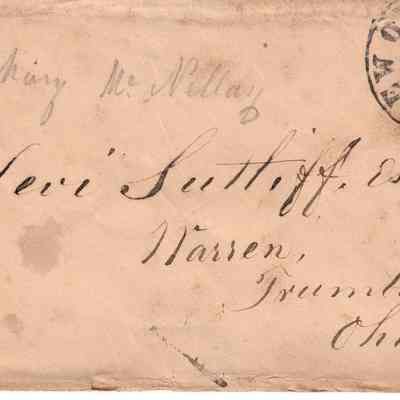 Mary Mc Nellay
Levi Sutliff. Es
Warren,
Trumb
Ohi